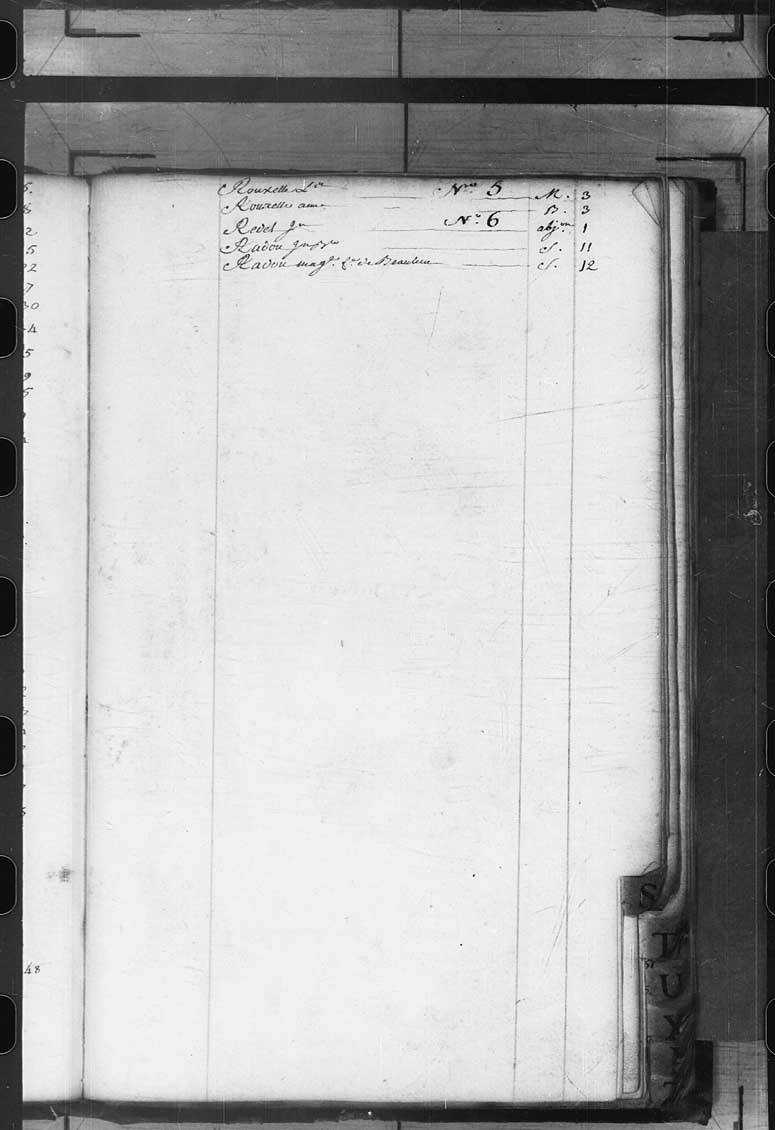 5.
8
2
5
22
7
30
4
5
9
5
Rouxelle Ls N.ro 5 M. 3
Rouxelle anne B. 3
Redet Jn N.o 6 abjon. 1
Radou S. 11
Radou magne. fe. de Beaulieu S. 12
48
S
T
U